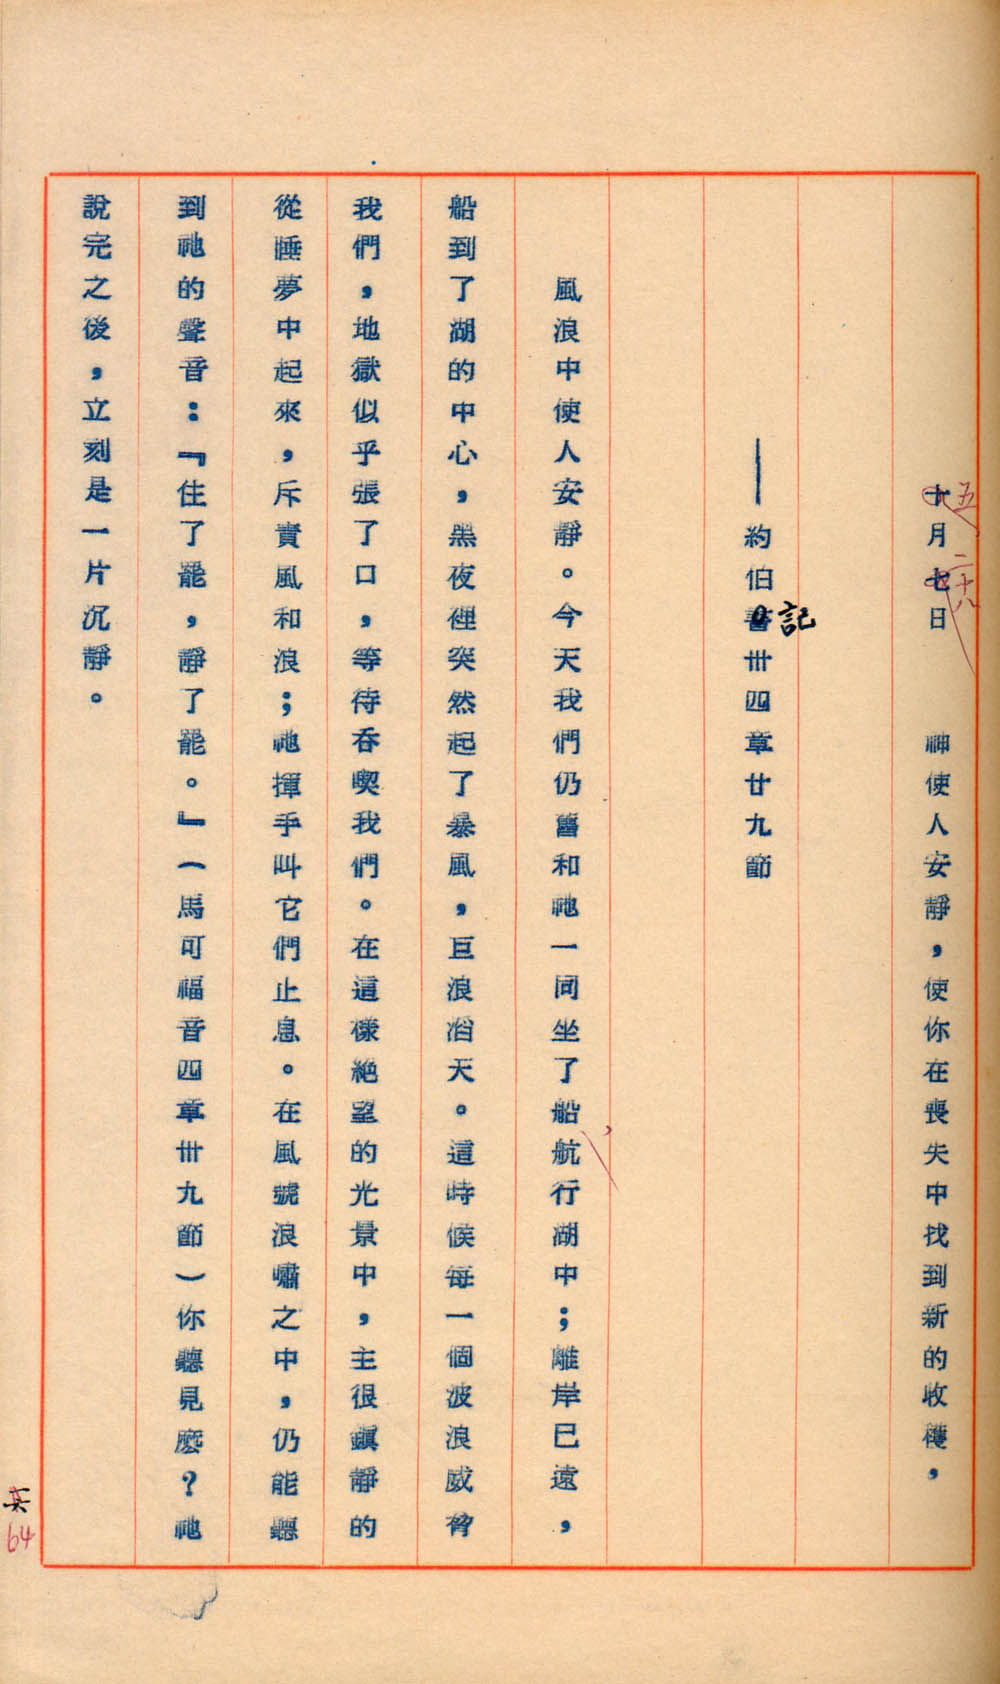 十月七日　神使人安靜，使你在喪失中找到新的收穫，
五
二十八
——約伯書卅四章廿九節
記
風浪中使人安靜。今天我們仍舊和祂一同坐了船航行湖中；離岸已遠，
船到了湖的中心，黑夜裡突然起了暴風，巨浪滔天。這時候每一個波浪威脅
我們，地獄似乎張了口，等待吞喫我們。在這樣絕望的光景中，主很鎮靜的
從睡夢中起來，斥責風和浪；祂揮手叫它們止息。在風號浪嘯之中，仍能聽
到祂的聲音：『住了罷，靜了罷。』（馬可福音四章卅九節）你聽見麼？祂
說完之後，立刻是一片沉靜。
64